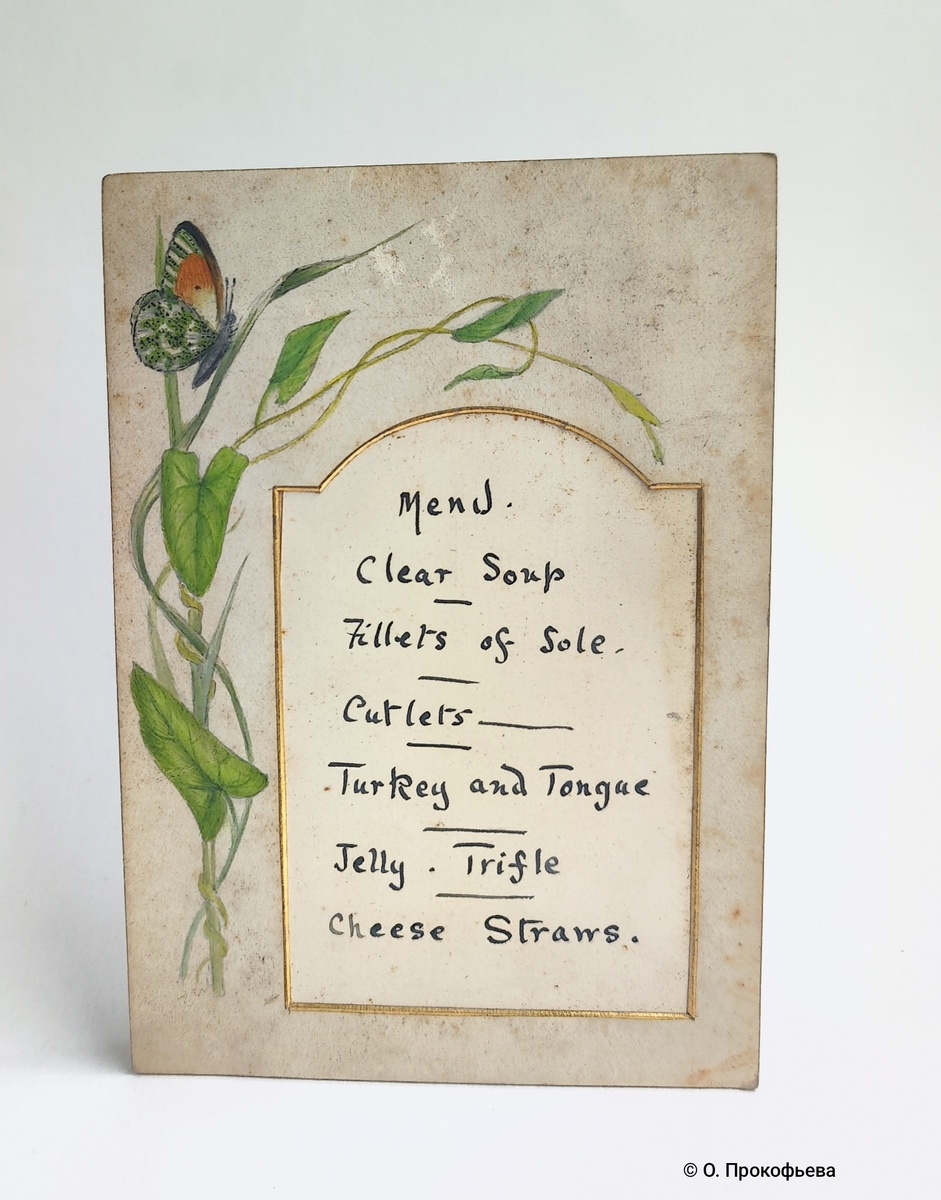 Menu.
Clear Soup
Fillets of Sole.
Cutlets
Turkey and Tongue
Jelly. Trifle
Cheese Straws.
© О. Прокофьева